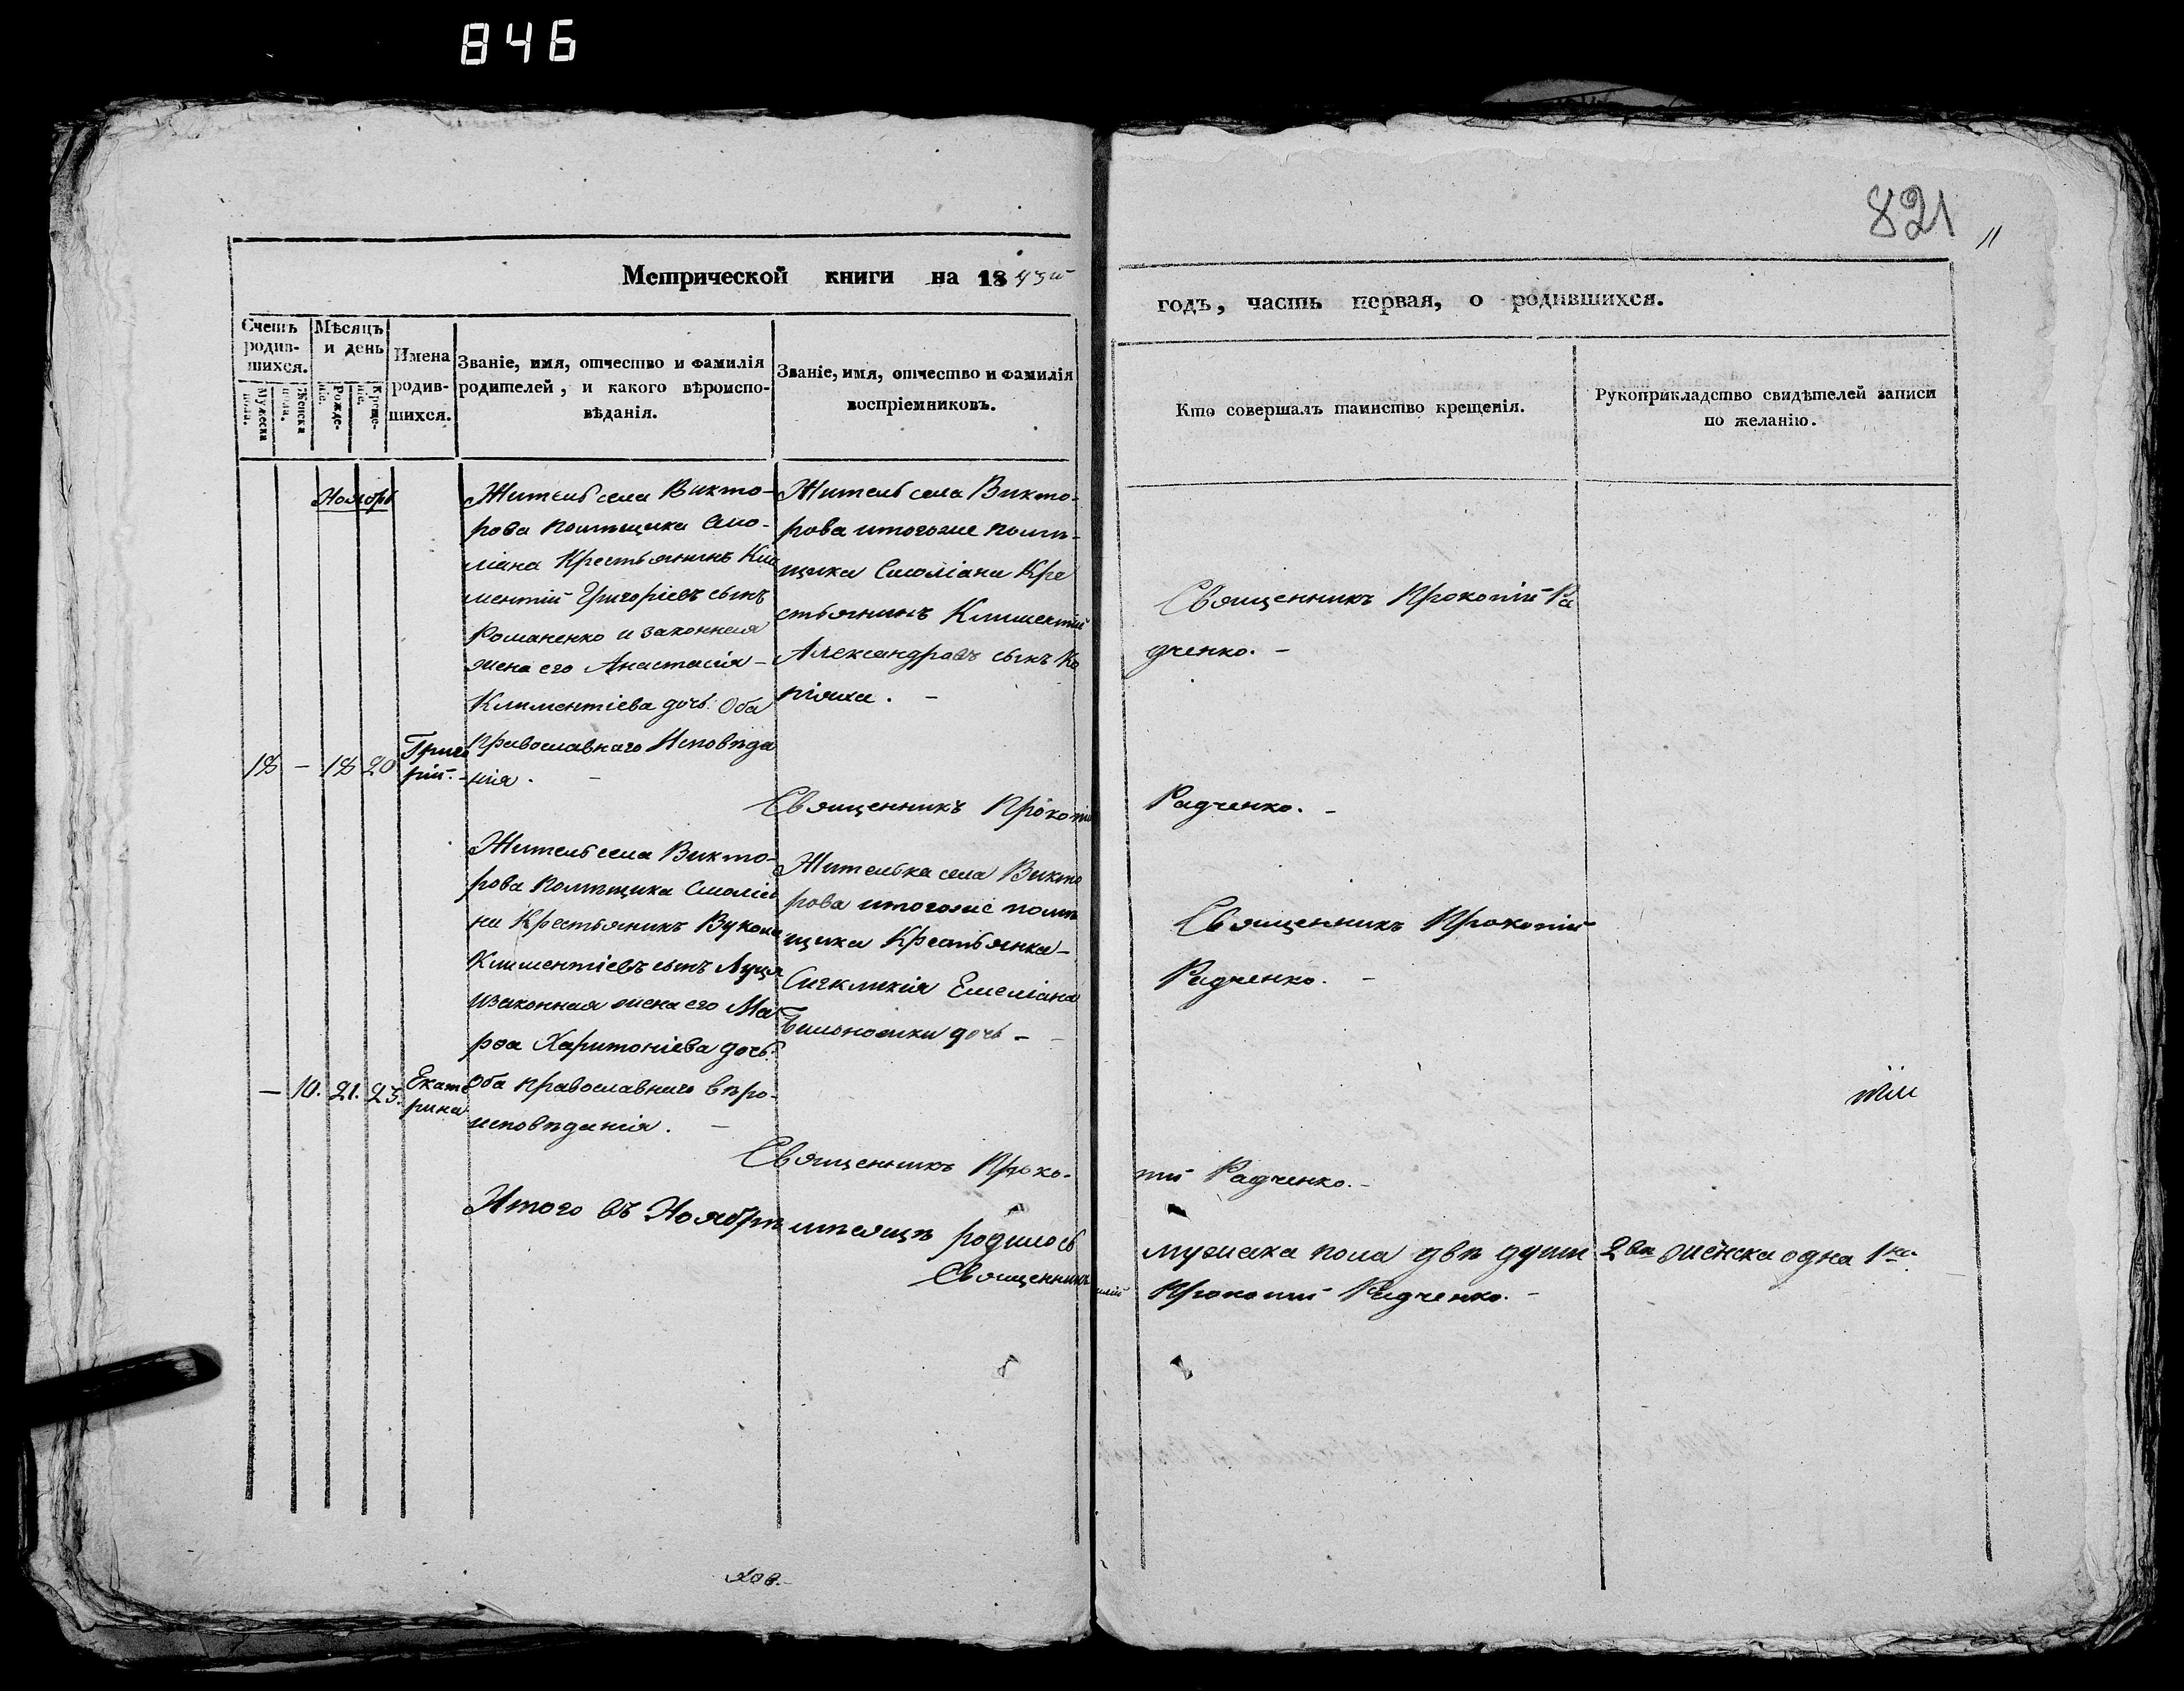 846
821
11
Метрической книги на 1843й
годъ, часть первая, о родившихся.
Счетъ родив-шихся.
Мужеска пола.
Женска пола.
Мѣсяцъ и день
Рожде-нiе.
Креще-нiе.
Имена родив-шихся.
Званiе, имя, отчество и фамилiя
родителей, и какого вѣроиспо-
вѣданiя.
Званiе, имя, отчество и фамилiя
воспрiемниковъ.
Кто совершалъ таинство крещенiя.
Рукоприкладство свидѣтелей записи
по желанiю.
Ноябрь
18 – 18 20
Григо
рiй. –
Житель села Викто-
рова помѣщика Смо-
лiана Крестьянинъ Кли
ментiй Григорiевъ сынъ
Романенко и законная
жена его Анастасiя –
Климентiева дочь. Оба
Православнаго Исповѣда
нiя. –
Житель села Викто-
рова итогоже помѣ-
щика Смолiана Кре
стьянинъ Климентiй
Александровъ сынъ Ко
пiяка. –
Священникъ Прокопiй Ра
дченко. –
Священникъ Прокопiй Радченко. –
– 10. 21. 23.
Екате
рина
Житель села Викто-
рова Помѣщика Смолiа
на Крестьянинъ Вукола
Климентiевъ сынъ Луця
изаконная жена его Ма
рѳа Харитонiева дочь.
Оба православнаго вѣро-
исповѣданiя. –
Жителька села Викто
рова итогоже помѣ
щика Крестьянка –
Сигкликiя Емелiана
Бѣлоножки дочь –
Священникъ Прокопiй
Радченко. –
Священникъ Проко-
пiй Радченко. –
Итого въ Ноябрѣ мѣсяцѣ родилось
мужеска пола двѣ души 2вѣ женска одна 1на.
Священникъ Прокопiй Радченко. –